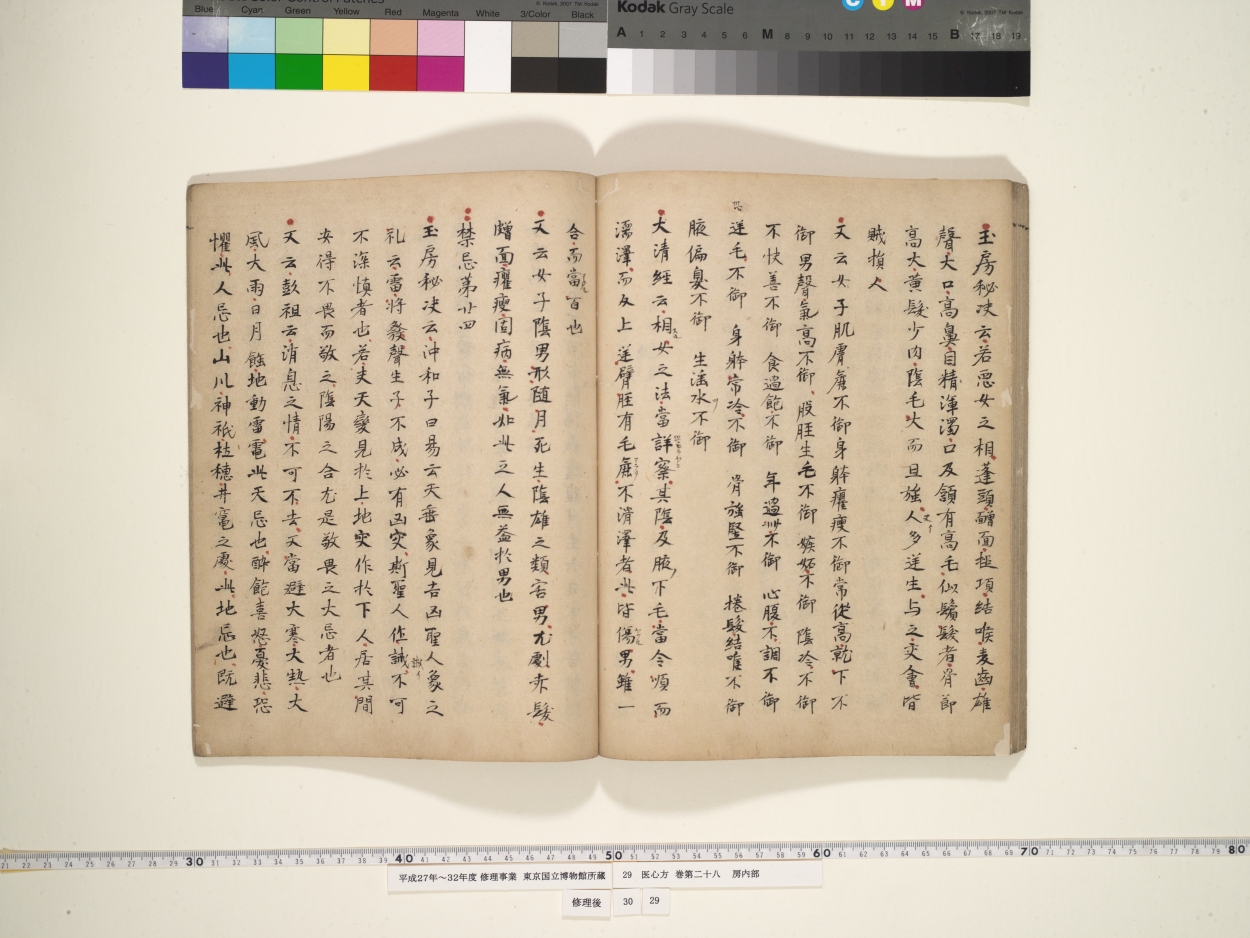 Color Control Patches
Blue Cyan Green Yellow Red Magenta White 3/Color Black
© Kodak, 2007 TM: Kodak
Kodak Gray Scale
C Y M
© Kodak, 2007 TM: Kodak
A 1 2 3 4 5 6 M 8 9 10 11 12 13 14 15 B 17 18 19
玉房秘决云若悪女之相蓬頭䵳面搥項結喉麦齒雄
聲大口高鼻目精渾濁口及頷有高毛似鬚髮者骨節
高大黄髮少肉陰毛大而且強人多逆生与之交會皆
賊損人
又云女子肌膚麁不御身躰癯瘦不御常從高就下不
御男聲氣高不御股脛生毛不御嫉妬不御陰冷不御
不快善不御食過飽不御年過卌不御心腹不調不御
逆毛不御身躰常冷不御骨強堅不御捲髮結喉不御
腋偏臭不御生淫水不御
大清經云相女之法當詳察其陰及腋下毛當令順而
濡澤而反上逆臂脛有毛麁不滑澤者此皆傷男雖一
合而當百也
又云女子陰男形随月死生陰雄之類害男尤劇赤髮
䵳面癯瘦固病無氣如此之人無益於男也
禁忌第廿四
玉房秘决云沖和子曰易云天垂象見吉凶聖人象之
礼云雷将發聲生子不成必有凶灾斯聖人作誡不可
不深慎者也若夫天變見於上地灾作於下人居其間
安得不畏而敬之陰陽之合尤是敬畏之大忌者也
又云彭祖云消息之情不可不去又當避大寒大熱大
風大雨日月蝕地動雷電此天忌也醉飽喜怒憂悲恐
懼此人忌也山川神祇社稷井竈之處此地忌也既避
21 22 23 24 25 26 27 28 29 30 31 32 33 34 35 36 37 38 39 40 41 42 43 44 45 46 47 48 49 50 51 52 53 54 55 56 57 58 59 60 61 62 63 64 65 66 67 68 69 70 71 72 73 74 75 76 77 78 79 80
平成27年～32年度 修理事業 東京国立博物館所蔵 29 医心方 巻第二十八 房内部
修理後 30 29